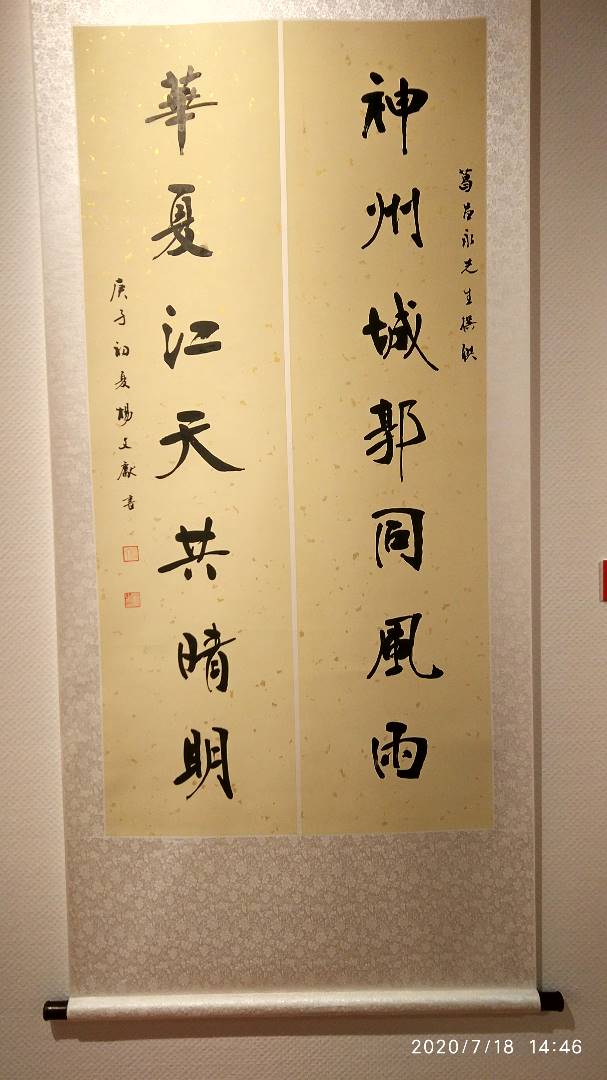 葛昌永先生撰联
神州城郭同風雨
華夏江天共晴明
庚子初夏楊文獻書
2020/7/18 14:46